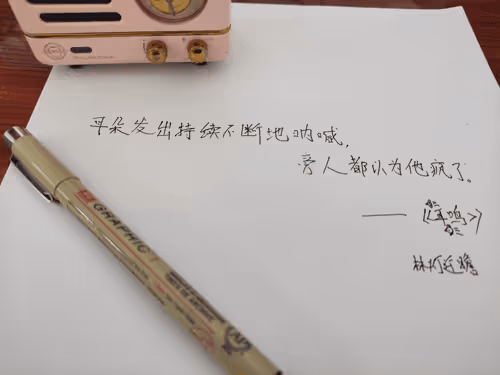 耳朵发出持续不断地呐喊,
旁人都认为他疯了。
——《耳鸣》
GRAPHIC